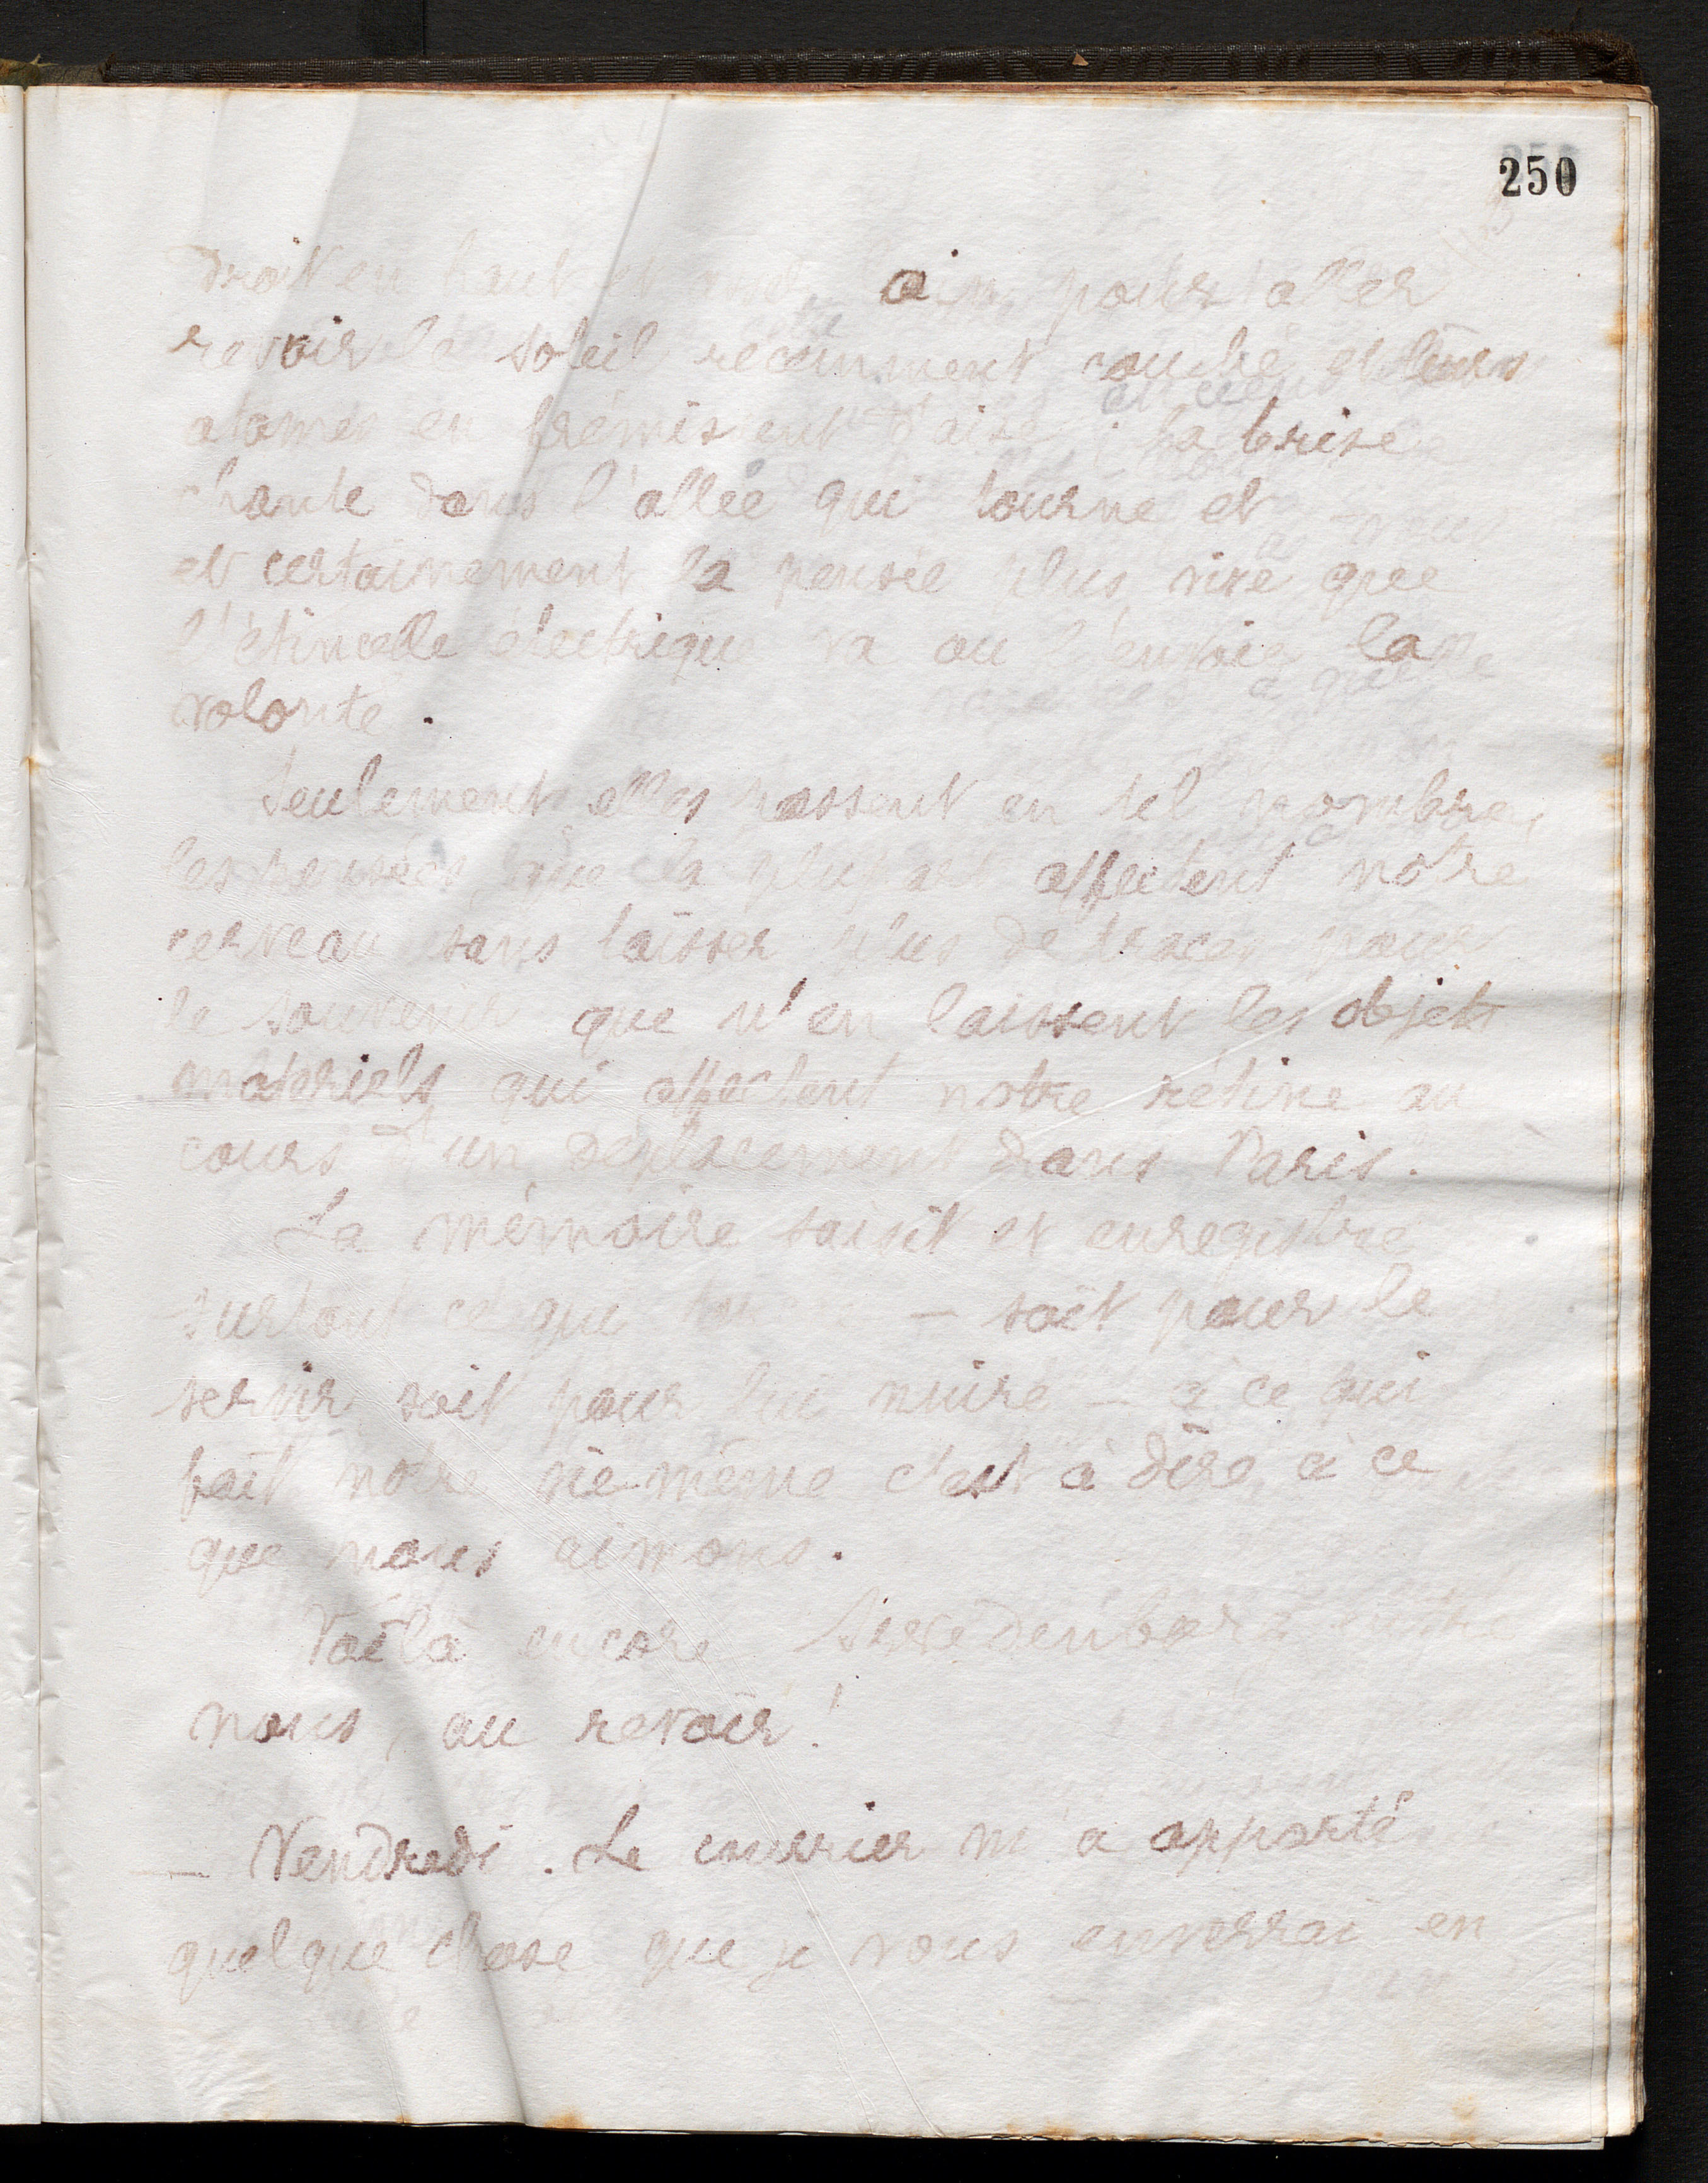 250
droit en haut et pour aller
revoir le soleil récemment couché et leurs
atomes en frémissent d'aise ; la brise
chante dans l'allée qui tourne et
et certainement la pensée plus vive que
l'étincelle électrique va ou l'envoie la
volonté.
Seulement elles passent en tel nombre,
les pensées, que la plupart affectent notre
cerveau sans laisser plus de traces pour
le souvenir que n'en laissent les objets
matériels qui affectent notre rétine au
cours d'un déplacement dans Paris.
La mémoire saisit et enregistre
surtout ce qui — soit pour le
servir soit pour lui nuire — à ce qui
fait notre vie même c'est à dire, à ce
que nous aimons.
Voilà encore entre
nous, au revoir !
— Vendredi. Le courrier m'a apporté
quelque chose que je vous enverrai en